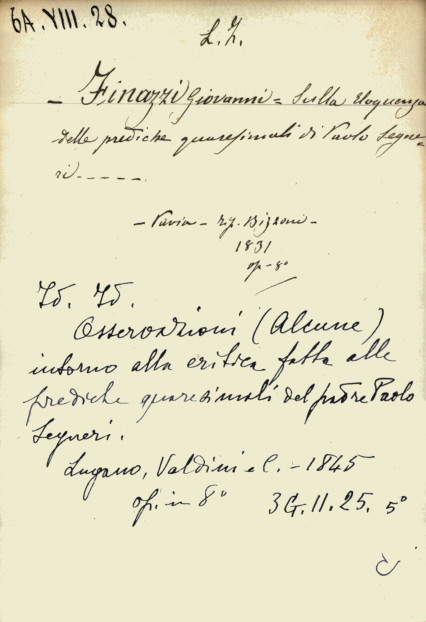 6A.VIII.28.
L. Z.
- Finazzi Giovanni = Sulla Eloquenza
delle prediche quaresimali di Paolo Segne-
ri-----
- Pavia - tip. Bizzoni -
1831
op - 8°
Id. Id.
Osservazioni (Alcune)
intorno alla critica fatta alle
prediche quaresimali del padre Paolo
Segneri.
Lugano, Valdini e C. - 1845
op. in 8° 3G.II.25. 5°